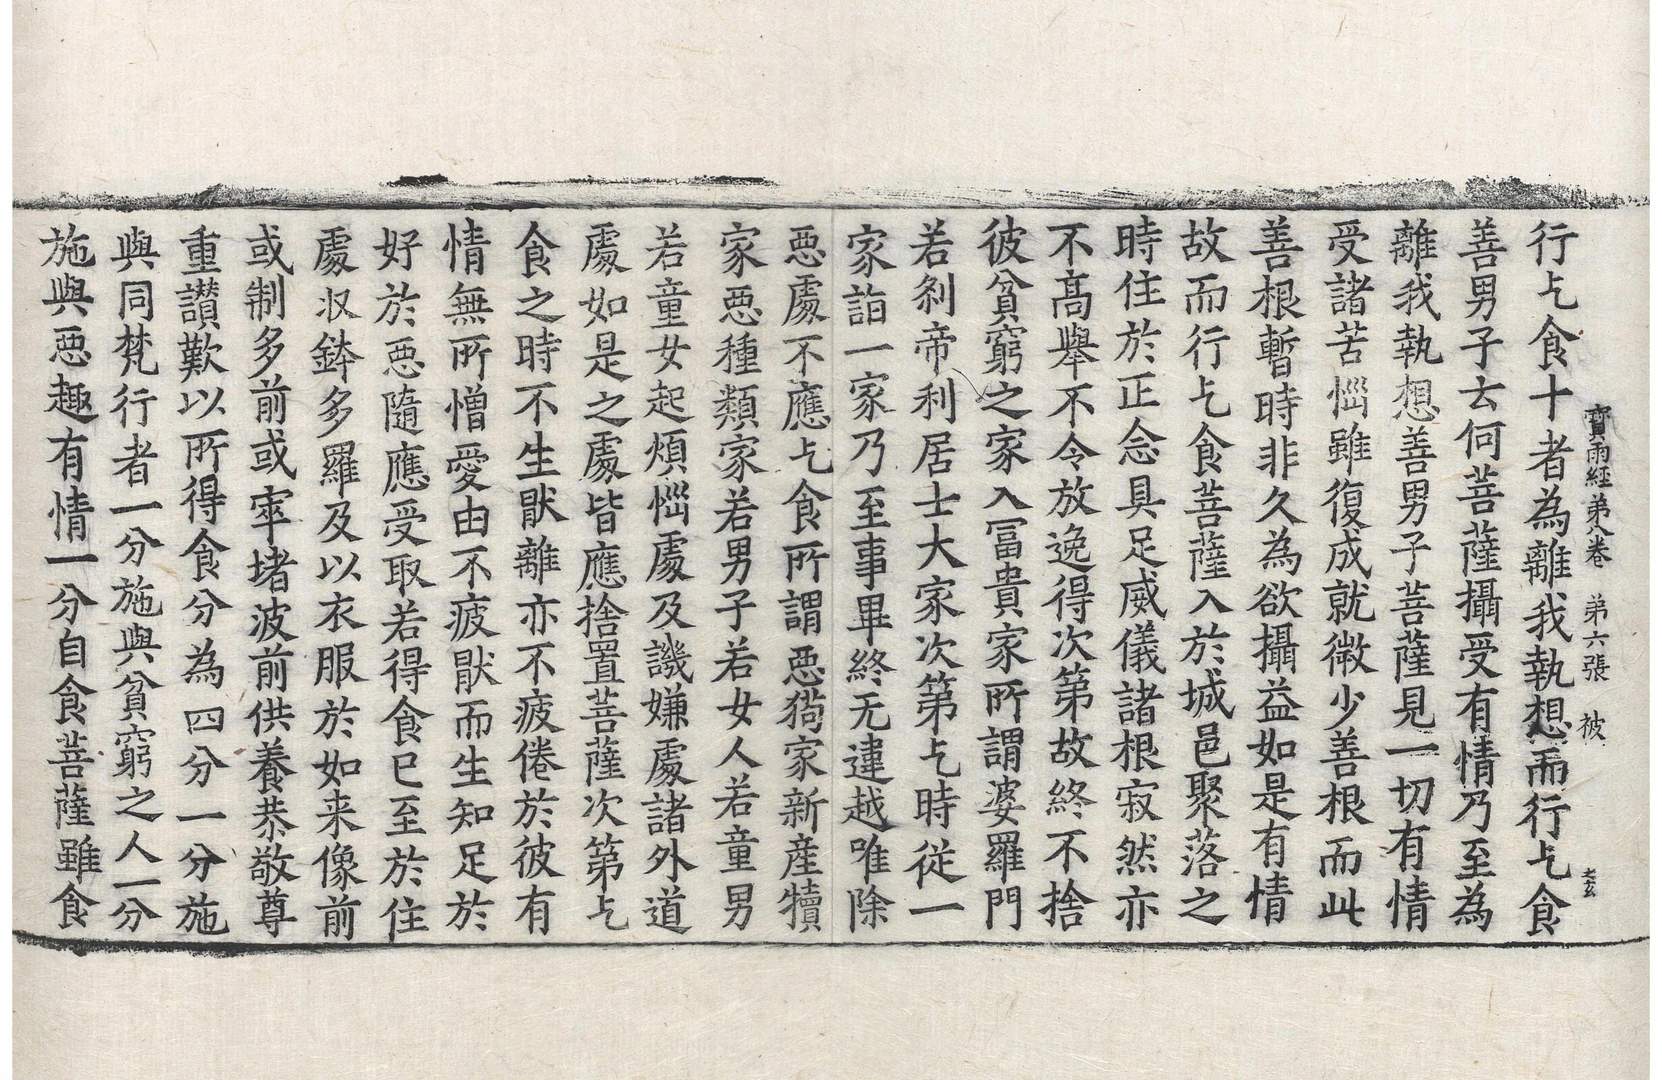 寶雨經弟八卷 弟六張 被
行乞食十者為離我執想而行乞食
善男子去何菩薩攝受有情乃至為
離我執想善男子菩薩見一切有情
受諸苦惱雖復成就微少善根而此
善根暫時非久為欲攝益如是有情
故而行乞食菩薩入於城邑聚落之
時住於正念具足威儀諸根寂然亦
不髙舉不令放逸得次第故終不捨
彼貧窮之家入冨貴家所謂婆羅門
若刹帝利居士大家次第乞時從一
家詣一家乃至事畢終无違越唯除
惡處不應乞食所謂惡猘家新産犢
家惡種類家若男子若女人若童男
若童女起煩惱處及譏嫌處諸外道
處如是之處皆應捨置菩薩次第乞
食之時不生猒離亦不疲倦於彼有
情無所憎愛由不疲猒而生知足於
好於惡隨應受取若得食已至於住
處収鉢多羅及以衣服於如来像前
或制多前或窣堵波前供養恭敬尊
重讃歎以所得食分為四分一分施
與同梵行者一分施與貧窮之人一分
施與惡趣有情一分自食菩薩雖食